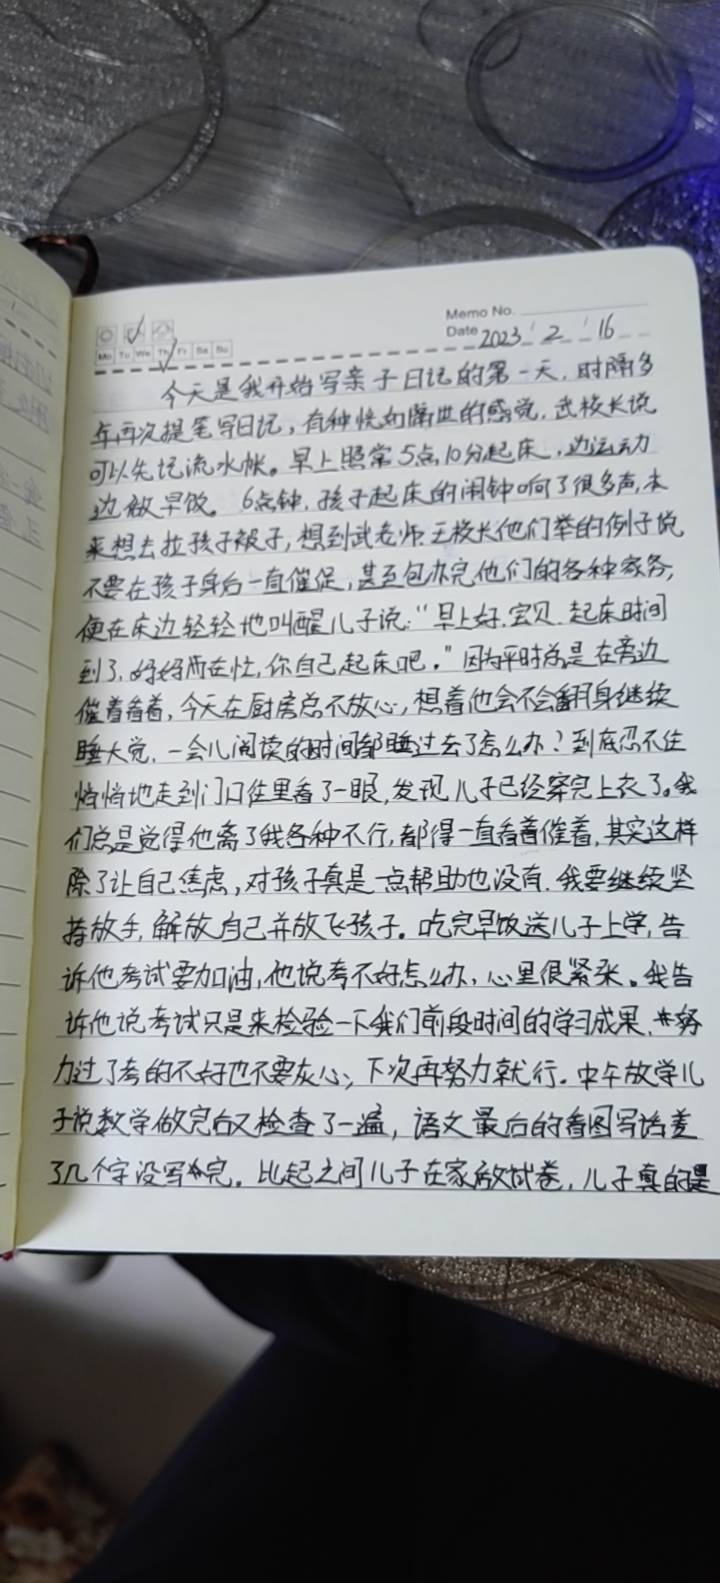 Memo No.
Mo Tu We Th Fr Sa Su
Date 2023 2 16
今天是我开始写亲子日记的第一天,时隔多
年再次提笔写日记,有种恍如隔世的感觉,武校长说
可以先记流水帐。早上照常5点10分起床,边运动
边做早饭。6点钟,孩子起床的闹钟响了很多声,本
来想去拉孩子被子,想到武老师、王校长他们举的例子说
不要在孩子身后一直催促,甚至包办完他们的各种家务,
便在床边轻轻地叫醒儿子说:“早上好,宝贝,起床时间
到了,妈妈而在忙,你自己起床吧。”因为平时总是在旁边
催着看着,今天在厨房总不放心,想着他会不会翻身继续
睡大觉,一会儿阅读的时间都睡过去了怎么办?到底忍不住
悄悄地走到门口往里看了一眼,发现儿子已经穿完上衣了。我
们总是觉得他离了我各种不行,都得一直看着催着,其实这样
除了让自己焦虑,对孩子真是一点帮助也没有,我要继续坚
持放手,解放自己并放飞孩子。吃完早饭送儿子上学,告
诉他考试要加油,他说考不好怎么办,心里很紧张。我告
诉他说考试只是来检验一下我们前段时间的学习成果,努
力过了考的不好也不要灰心,下次再努力就行。中午放学儿
子说数学做完后又检查了一遍,语文最后的看图写话差
了几个字没写完。比起之间儿子在家做试卷,儿子真的是